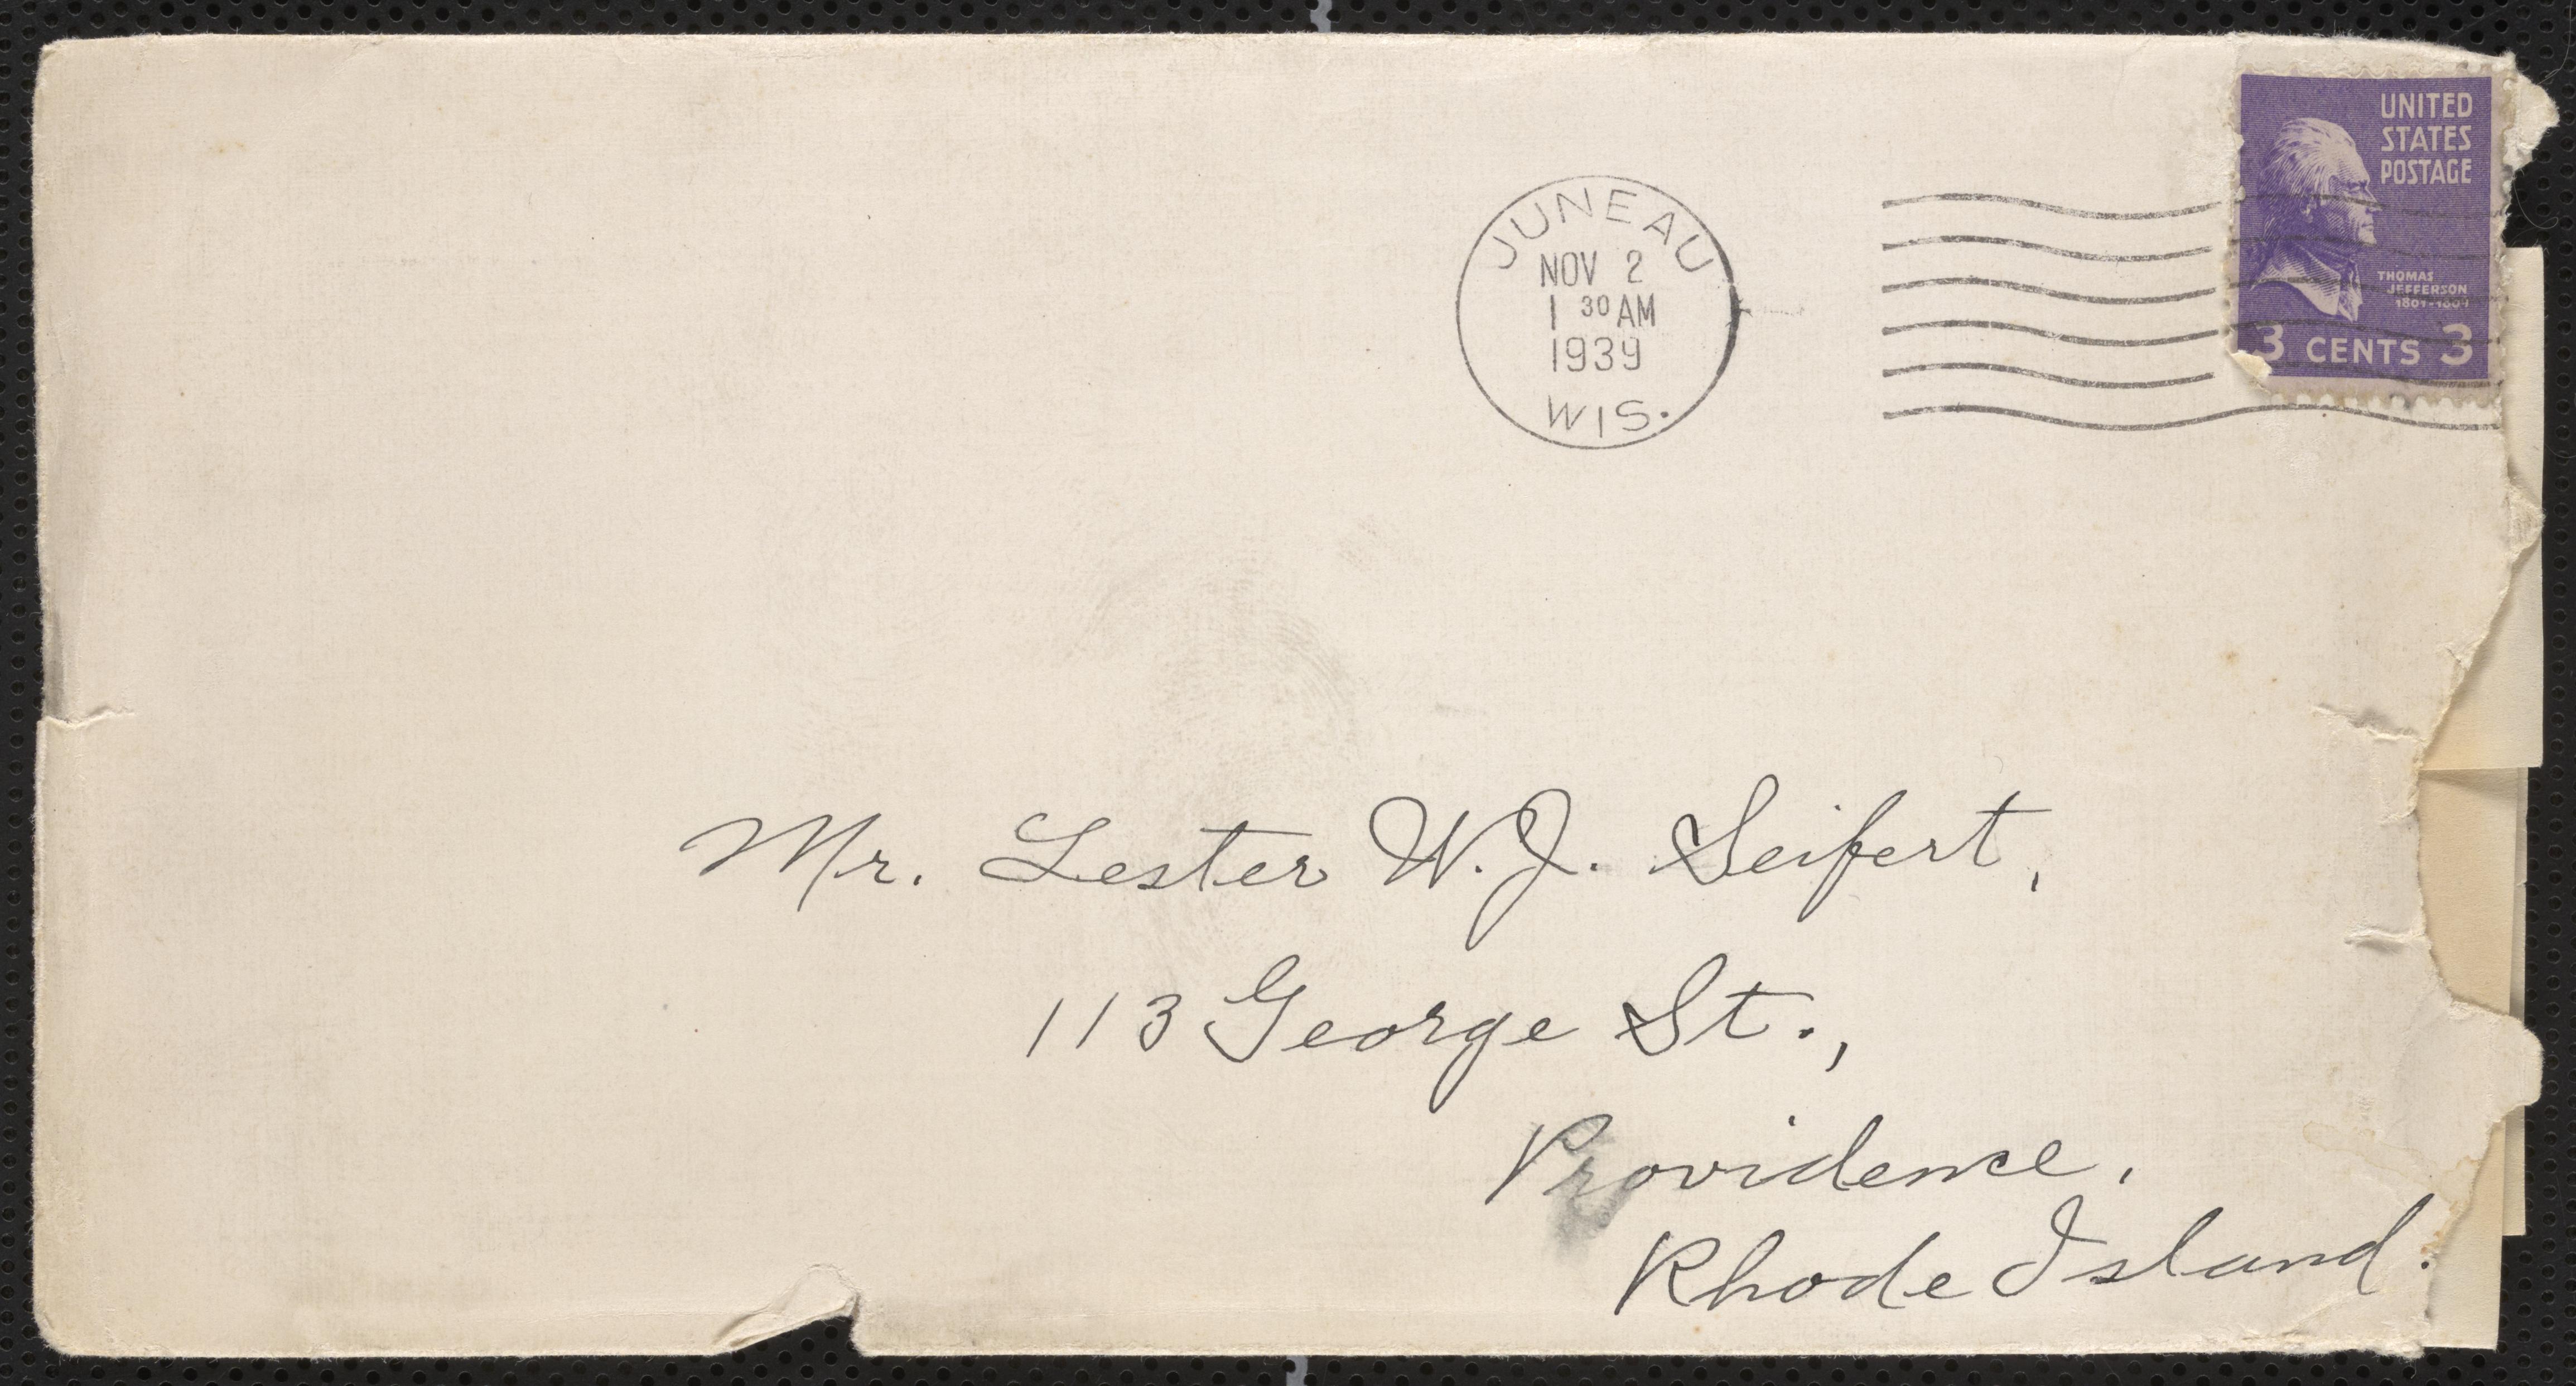 JUNEAU
NOV 2
1 30 AM
1939
WIS.
UNITED
STATES
POSTAGE
THOMAS
JEFFERSON
1801-1809
3 CENTS 3
Mr. Lester W. J. Seifert,
113 George St.,
Providence,
Rhode Island.